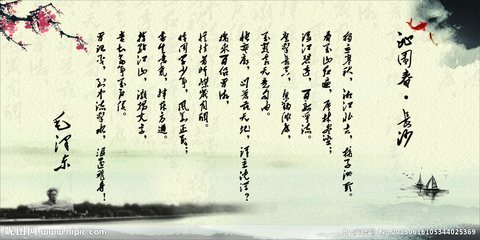 沁园春·长沙
独立寒秋，湘江北去，橘子洲头。
看万山红遍，层林尽染；
漫江碧透，百舸争流。
鹰击长空，鱼翔浅底，
万类霜天竞自由。
怅寥廓，问苍茫大地，谁主沉浮？
携来百侣曾游，
忆往昔峥嵘岁月稠。
恰同学少年，风华正茂；
书生意气，挥斥方遒。
指点江山，激扬文字，
粪土当年万户侯。
曾记否，到中流击水，浪遏飞舟！
毛泽东
昵图网 www.nipic.com